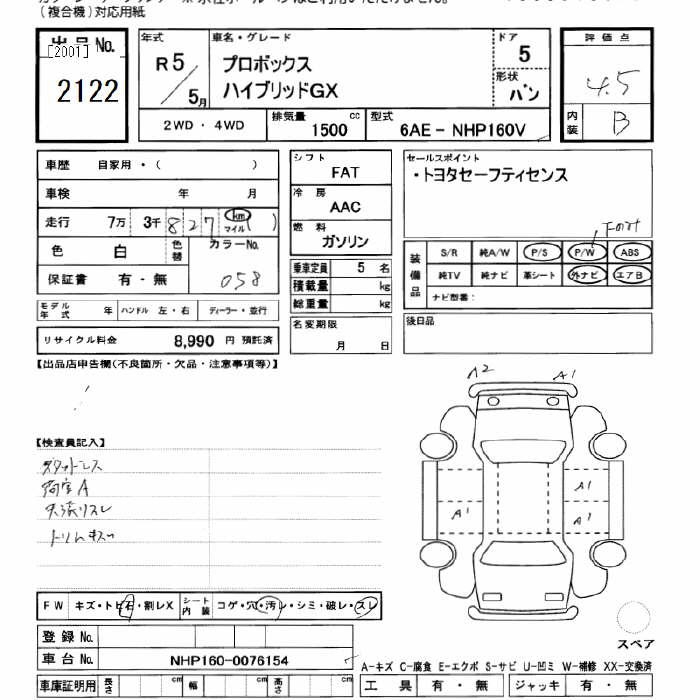 (複合機)対応用紙
出品No.
[2001]
2122
年式
R5
5月
車名・グレード
プロボックス
ハイブリッドGX
ドア
5
形状
バン
評価点
4.5
内装
B
2WD・4WD
排気量
1500 cc
型式
6AE-NHP160V
車歴 自家用・( )
車検 年 月
走行 7万 3千 827 km マイル ( )
色 白 色替 カラーNo.
058
保証書 有・無
モデル年式 年 ハンドル 左・右 ディーラー・並行
リサイクル料金 8,990円 預託済
シフト
FAT
冷房
AAC
燃料
ガソリン
乗車定員 5名
積載量 kg
総重量 kg
名変期限
月 日
セールスポイント
・トヨタセーフティセンス
Front
装備品
S/R 純A/W P/S P/W ABS
純TV 純ナビ 革シート 外ナビ エアB
ナビ型番:
後日品
【出品店申告欄(不良箇所・欠品・注意事項等)】
【検査員記入】
荷室A
トリムキズ
A2 A1
A1
A1 A1
FW キズ・トビ石・割レX シート内装 コゲ・穴・汚レ・シミ・破レ・スレ
登録No.
車台No. NHP160-0076154
車庫証明用 長さ cm 幅 cm 高さ cm
スペア
A-キズ C-腐食 E-エクボ S-サビ U-凹ミ W-補修 XX-交換済
工具 有・無 ジャッキ 有・無